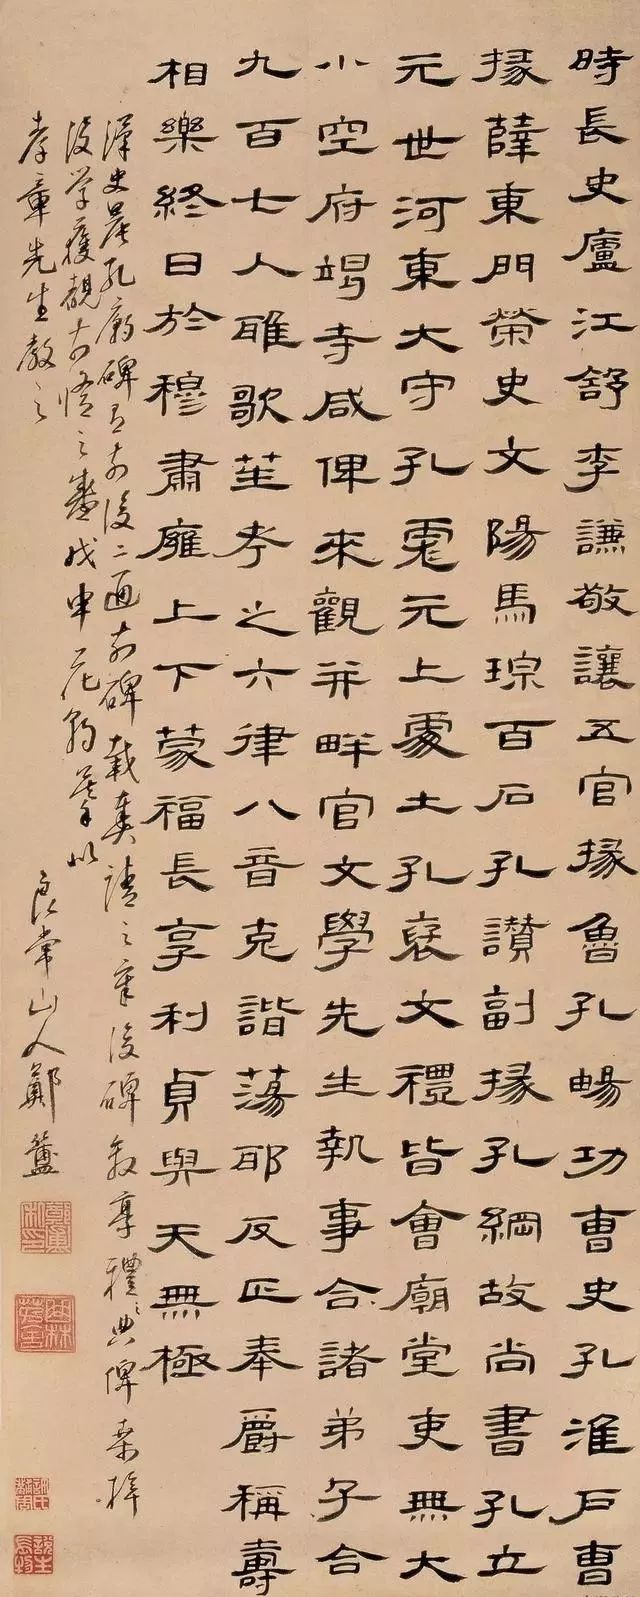 時長史廬江舒李謙敬讓五官掾魯孔暢功曹史孔淮戶曹
掾薛東門榮史文陽馬琮百石孔讃副掾孔綱故尚書孔立
元世河東大守孔彪元上處土孔裦文禮皆會廟堂吏無大
小空府竭寺咸俾來觀并畔官文學先生執事合諸弟子合
九百七人雎歌苼考之六律八音克諧蕩耶反正奉爵稱壽
相樂終日於穆肅廱上下蒙福長享利貞與天無極
漢史晨孔廟碑有前後二通前碑載奏請之章後碑敘享禮之典俾
後學獲觀古情之盛戊申花朝摹以
孝章先生教之
良常山人鄭簠